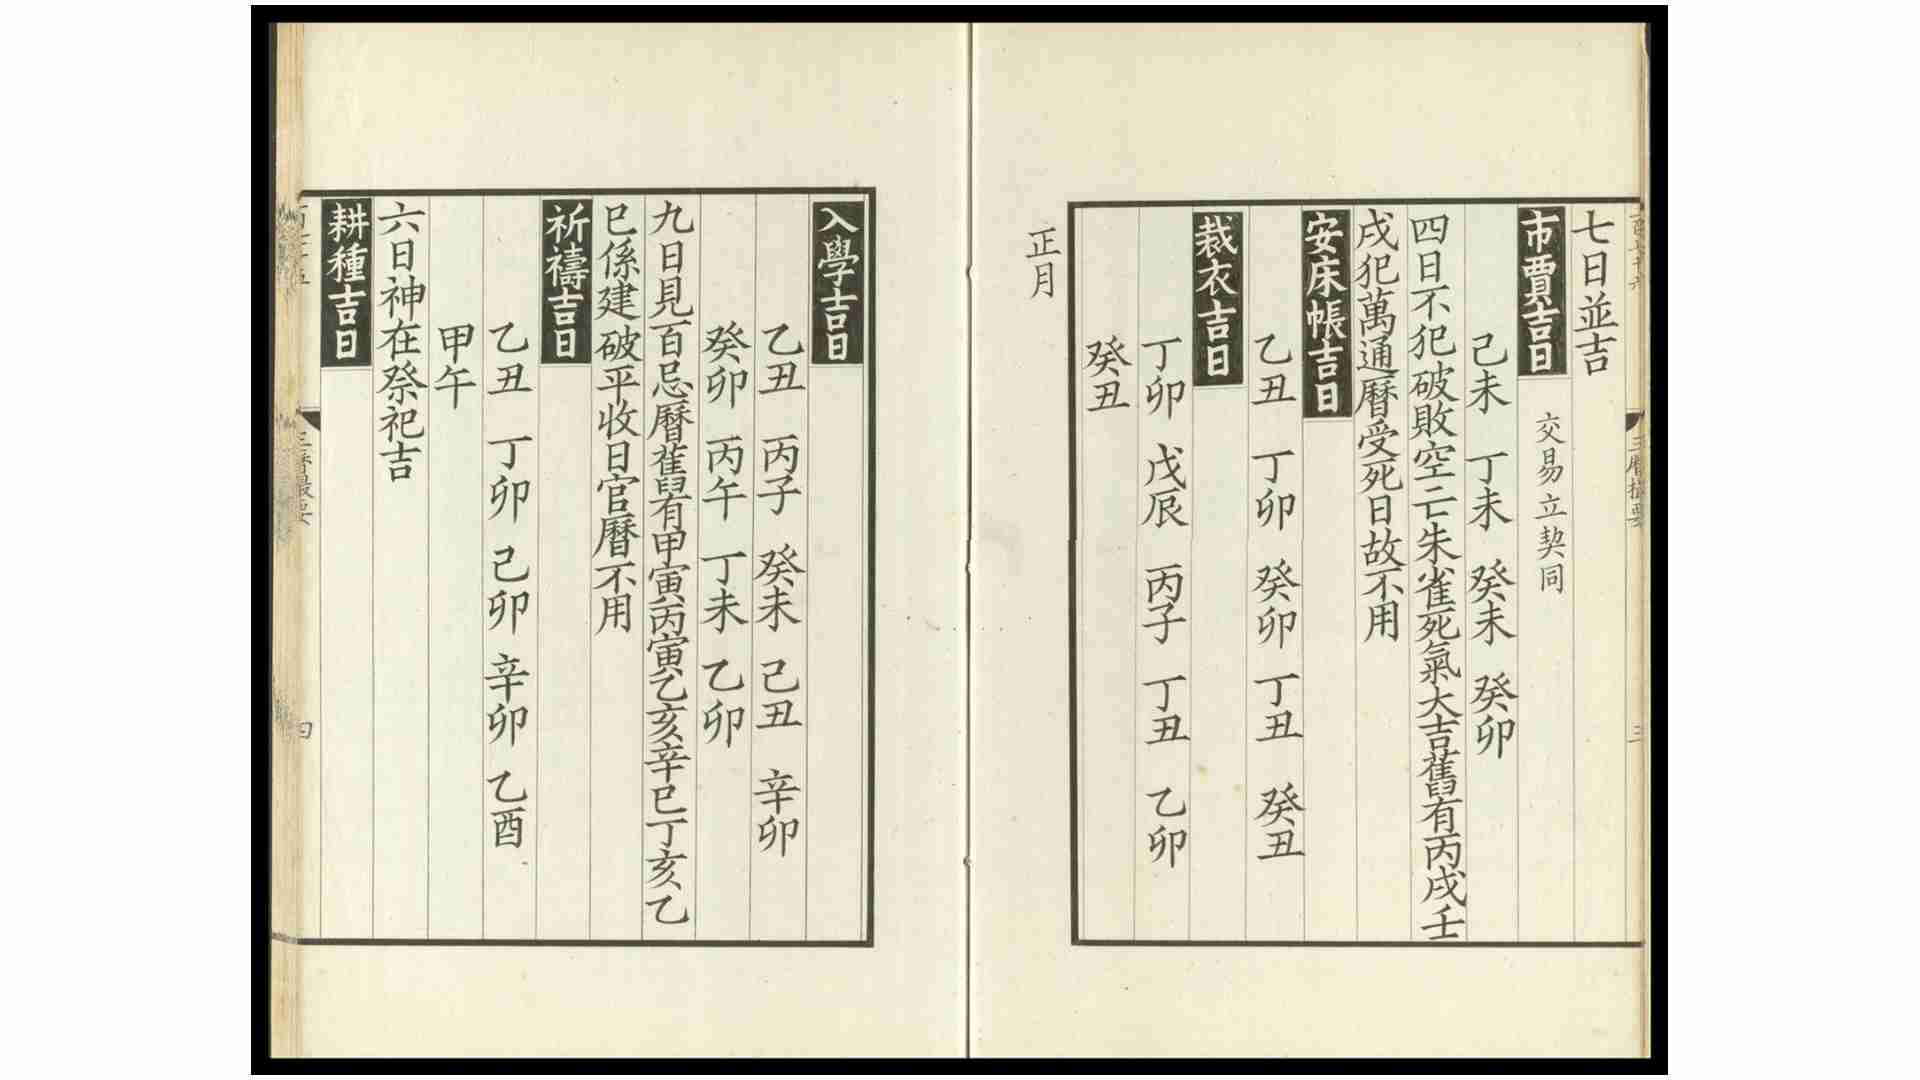 七日並吉
市賈吉日 交易立契同
己未 丁未 癸未 癸卯
四日不犯破敗空亡朱雀死氣大吉舊有丙戌壬
戌犯萬通曆受死日故不用
安床帳吉日
乙丑 丁卯 癸卯 丁丑 癸丑
裁衣吉日
丁卯 戊辰 丙子 丁丑 乙卯
癸丑
正月
入學吉日
乙丑 丙子 癸未 己丑 辛卯
癸卯 丙午 丁未 乙卯
九日見百忌曆舊有甲寅丙寅乙亥辛巳丁亥乙
巳係建破平收日官曆不用
祈禱吉日
乙丑 丁卯 己卯 辛卯 乙酉
甲午
六日神在祭祀吉
耕種吉日
四